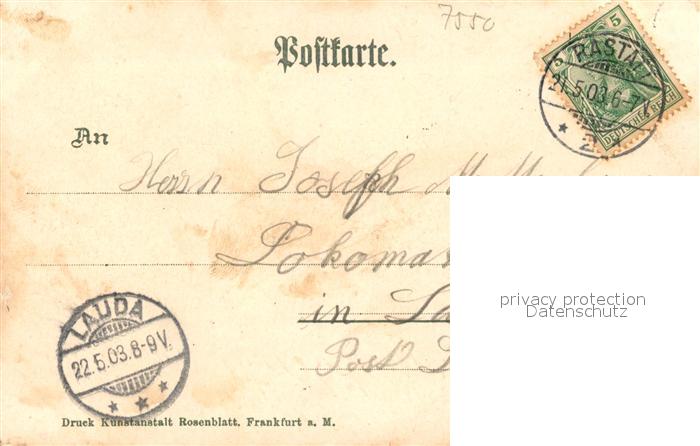 7550
5
RASTA
21.5.03.6-7
DEUTSCHES REICH
* 2
Postkarte.
An
Herrn Joseph M.
Lokoma
in La
Post
privacy protection
Datenschutz
LAUDA
22.5.03.8-9V.
Druck Kunstanstalt Rosenblatt, Frankfurt a. M.